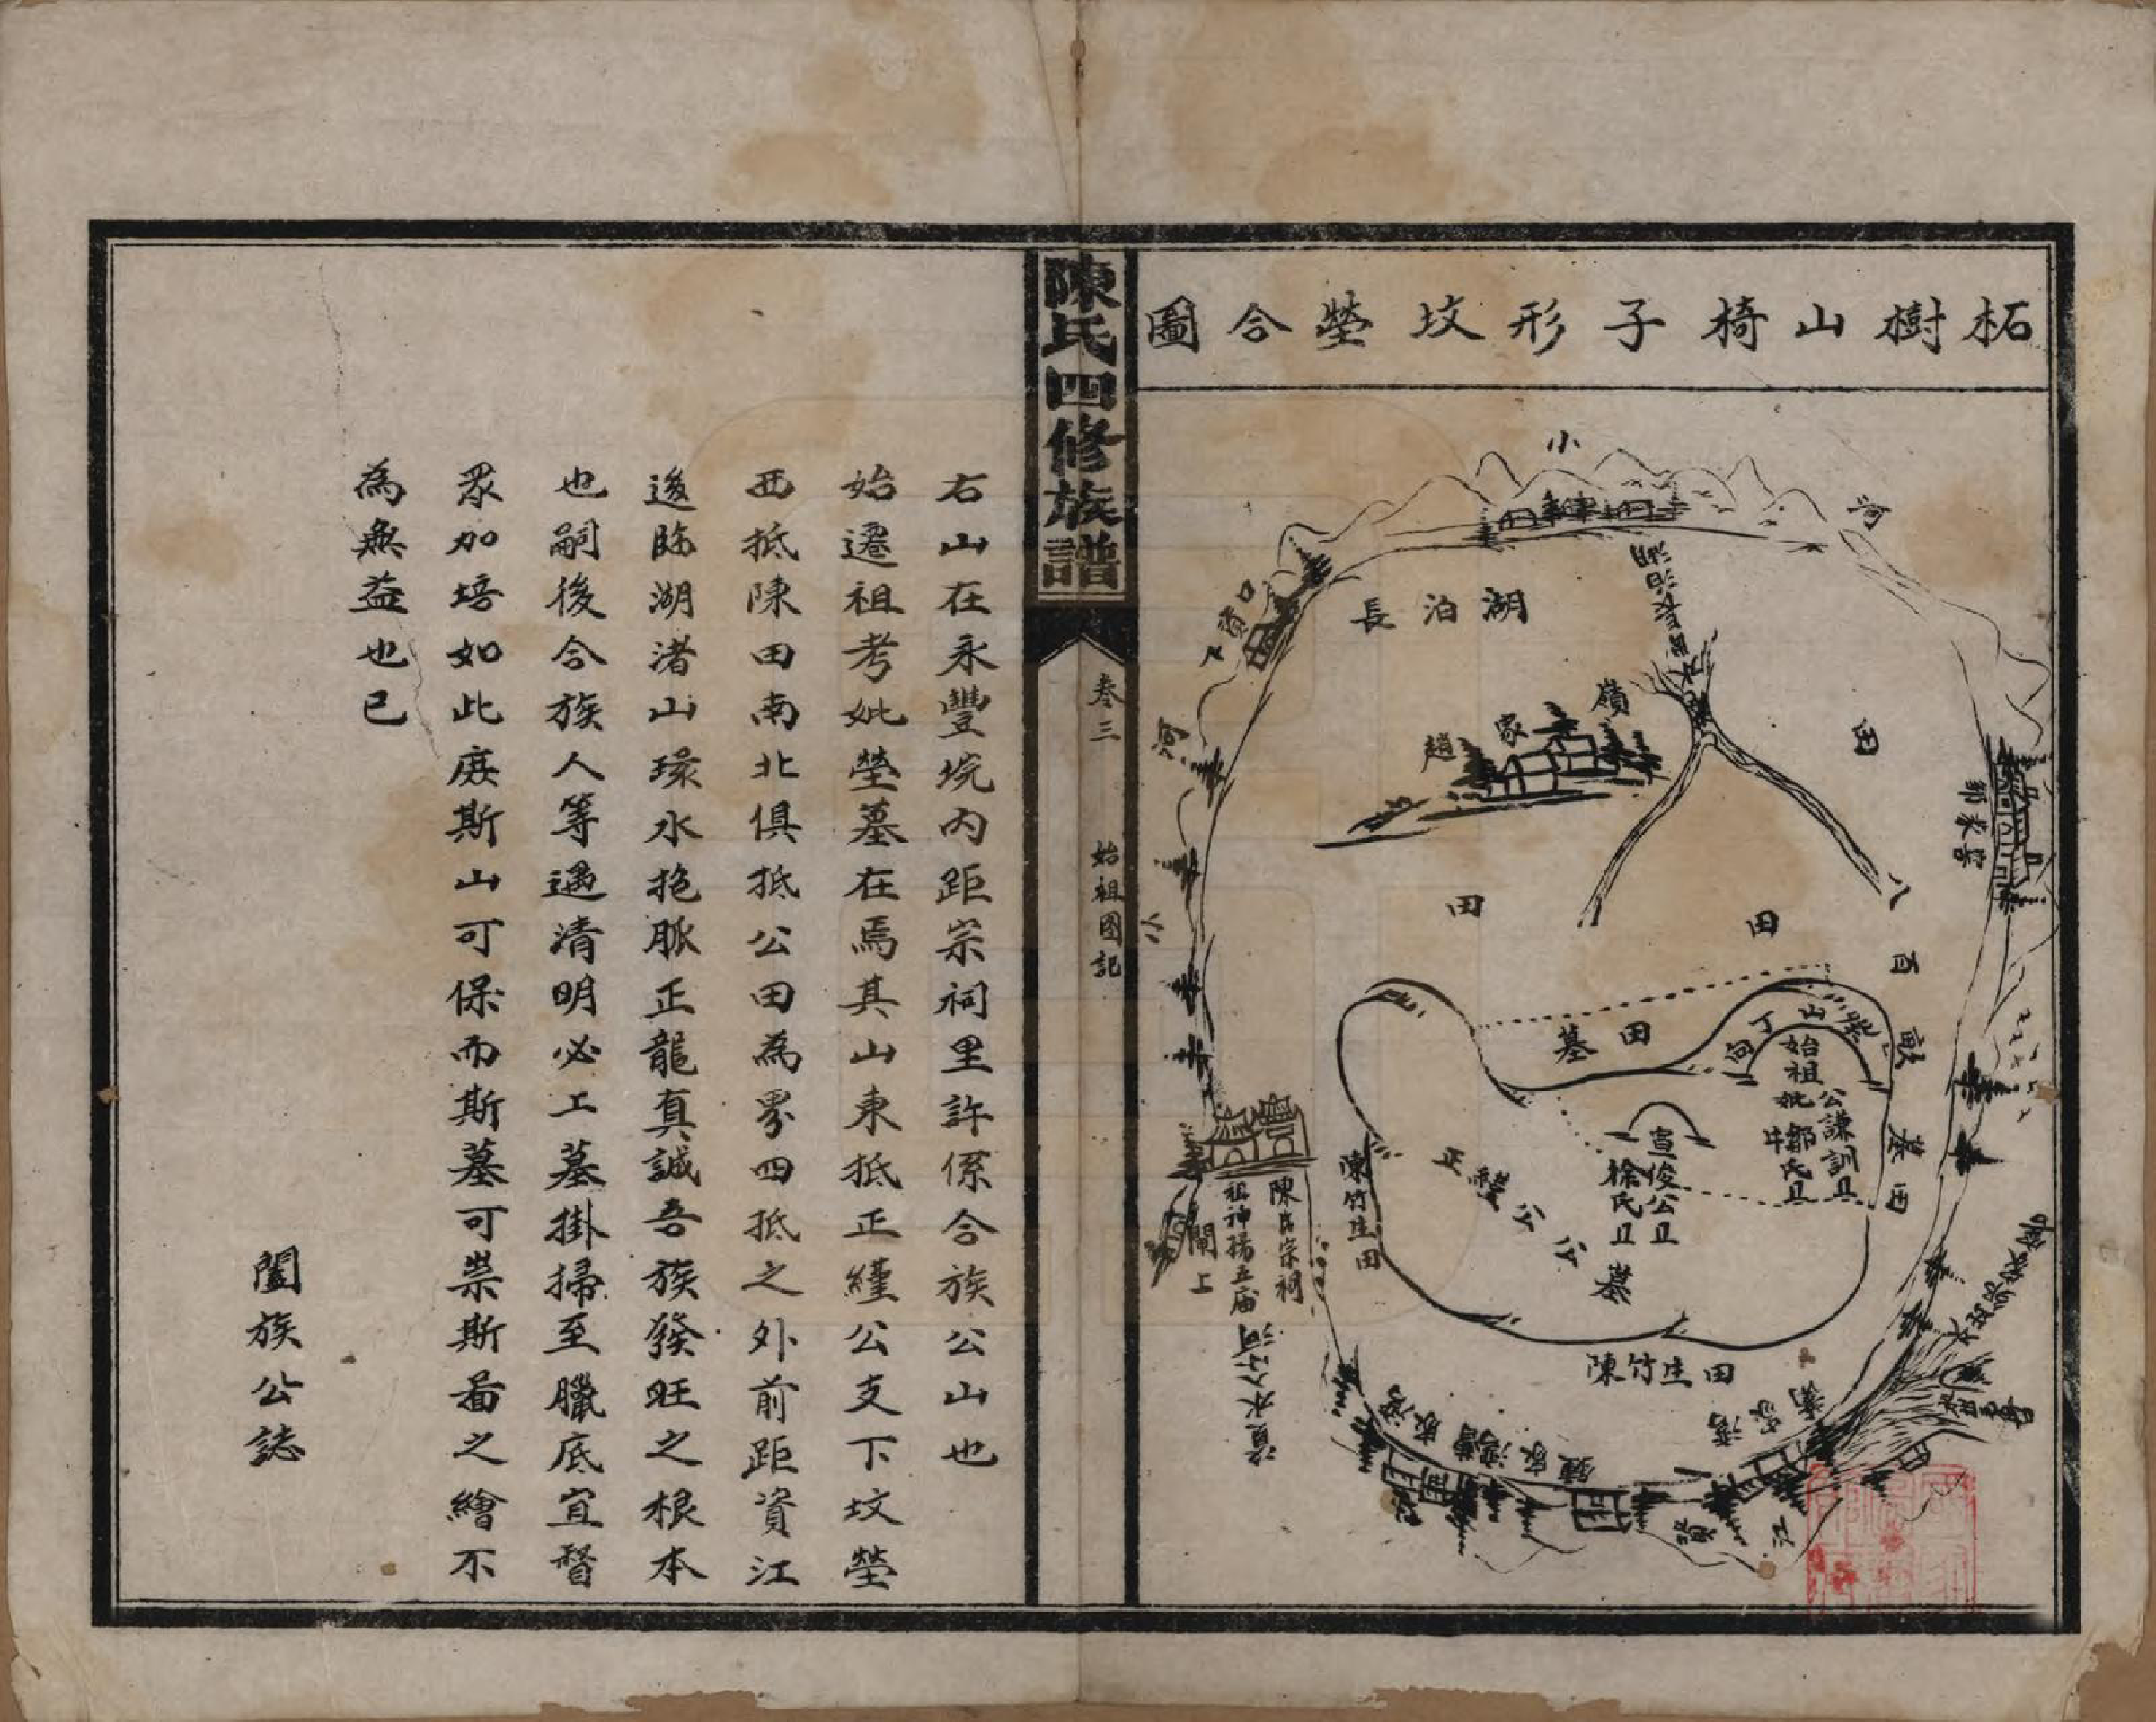 柘樹山椅子形坟塋合圖
小
河
湖泊長
田
趙家嶺
河
田
田
八百畝墓田
墓田
丁山
向
始祖
公謙訓
妣鄒氏
宣俊公
徐氏
正纁公公墓
陳竹生田
陳竹生田
陳氏宗祠
閘上
資水入河
陳氏四修族譜
卷三
始祖圖記
右山在永豐垸內距宗祠里許係合族公山也
始遷祖考妣塋墓在焉其山東抵正纁公支下坟塋
西抵陳田南北俱抵公田為界四抵之外前距資江
後臨湖渚山環水抱脈正龍真誠吾族發旺之根本
也嗣後合族人等遇清明必工墓掛掃至臘底宜督
眾加培如此庶斯山可保而斯墓可崇斯啚之繪不
為無益也已
闔族公誌